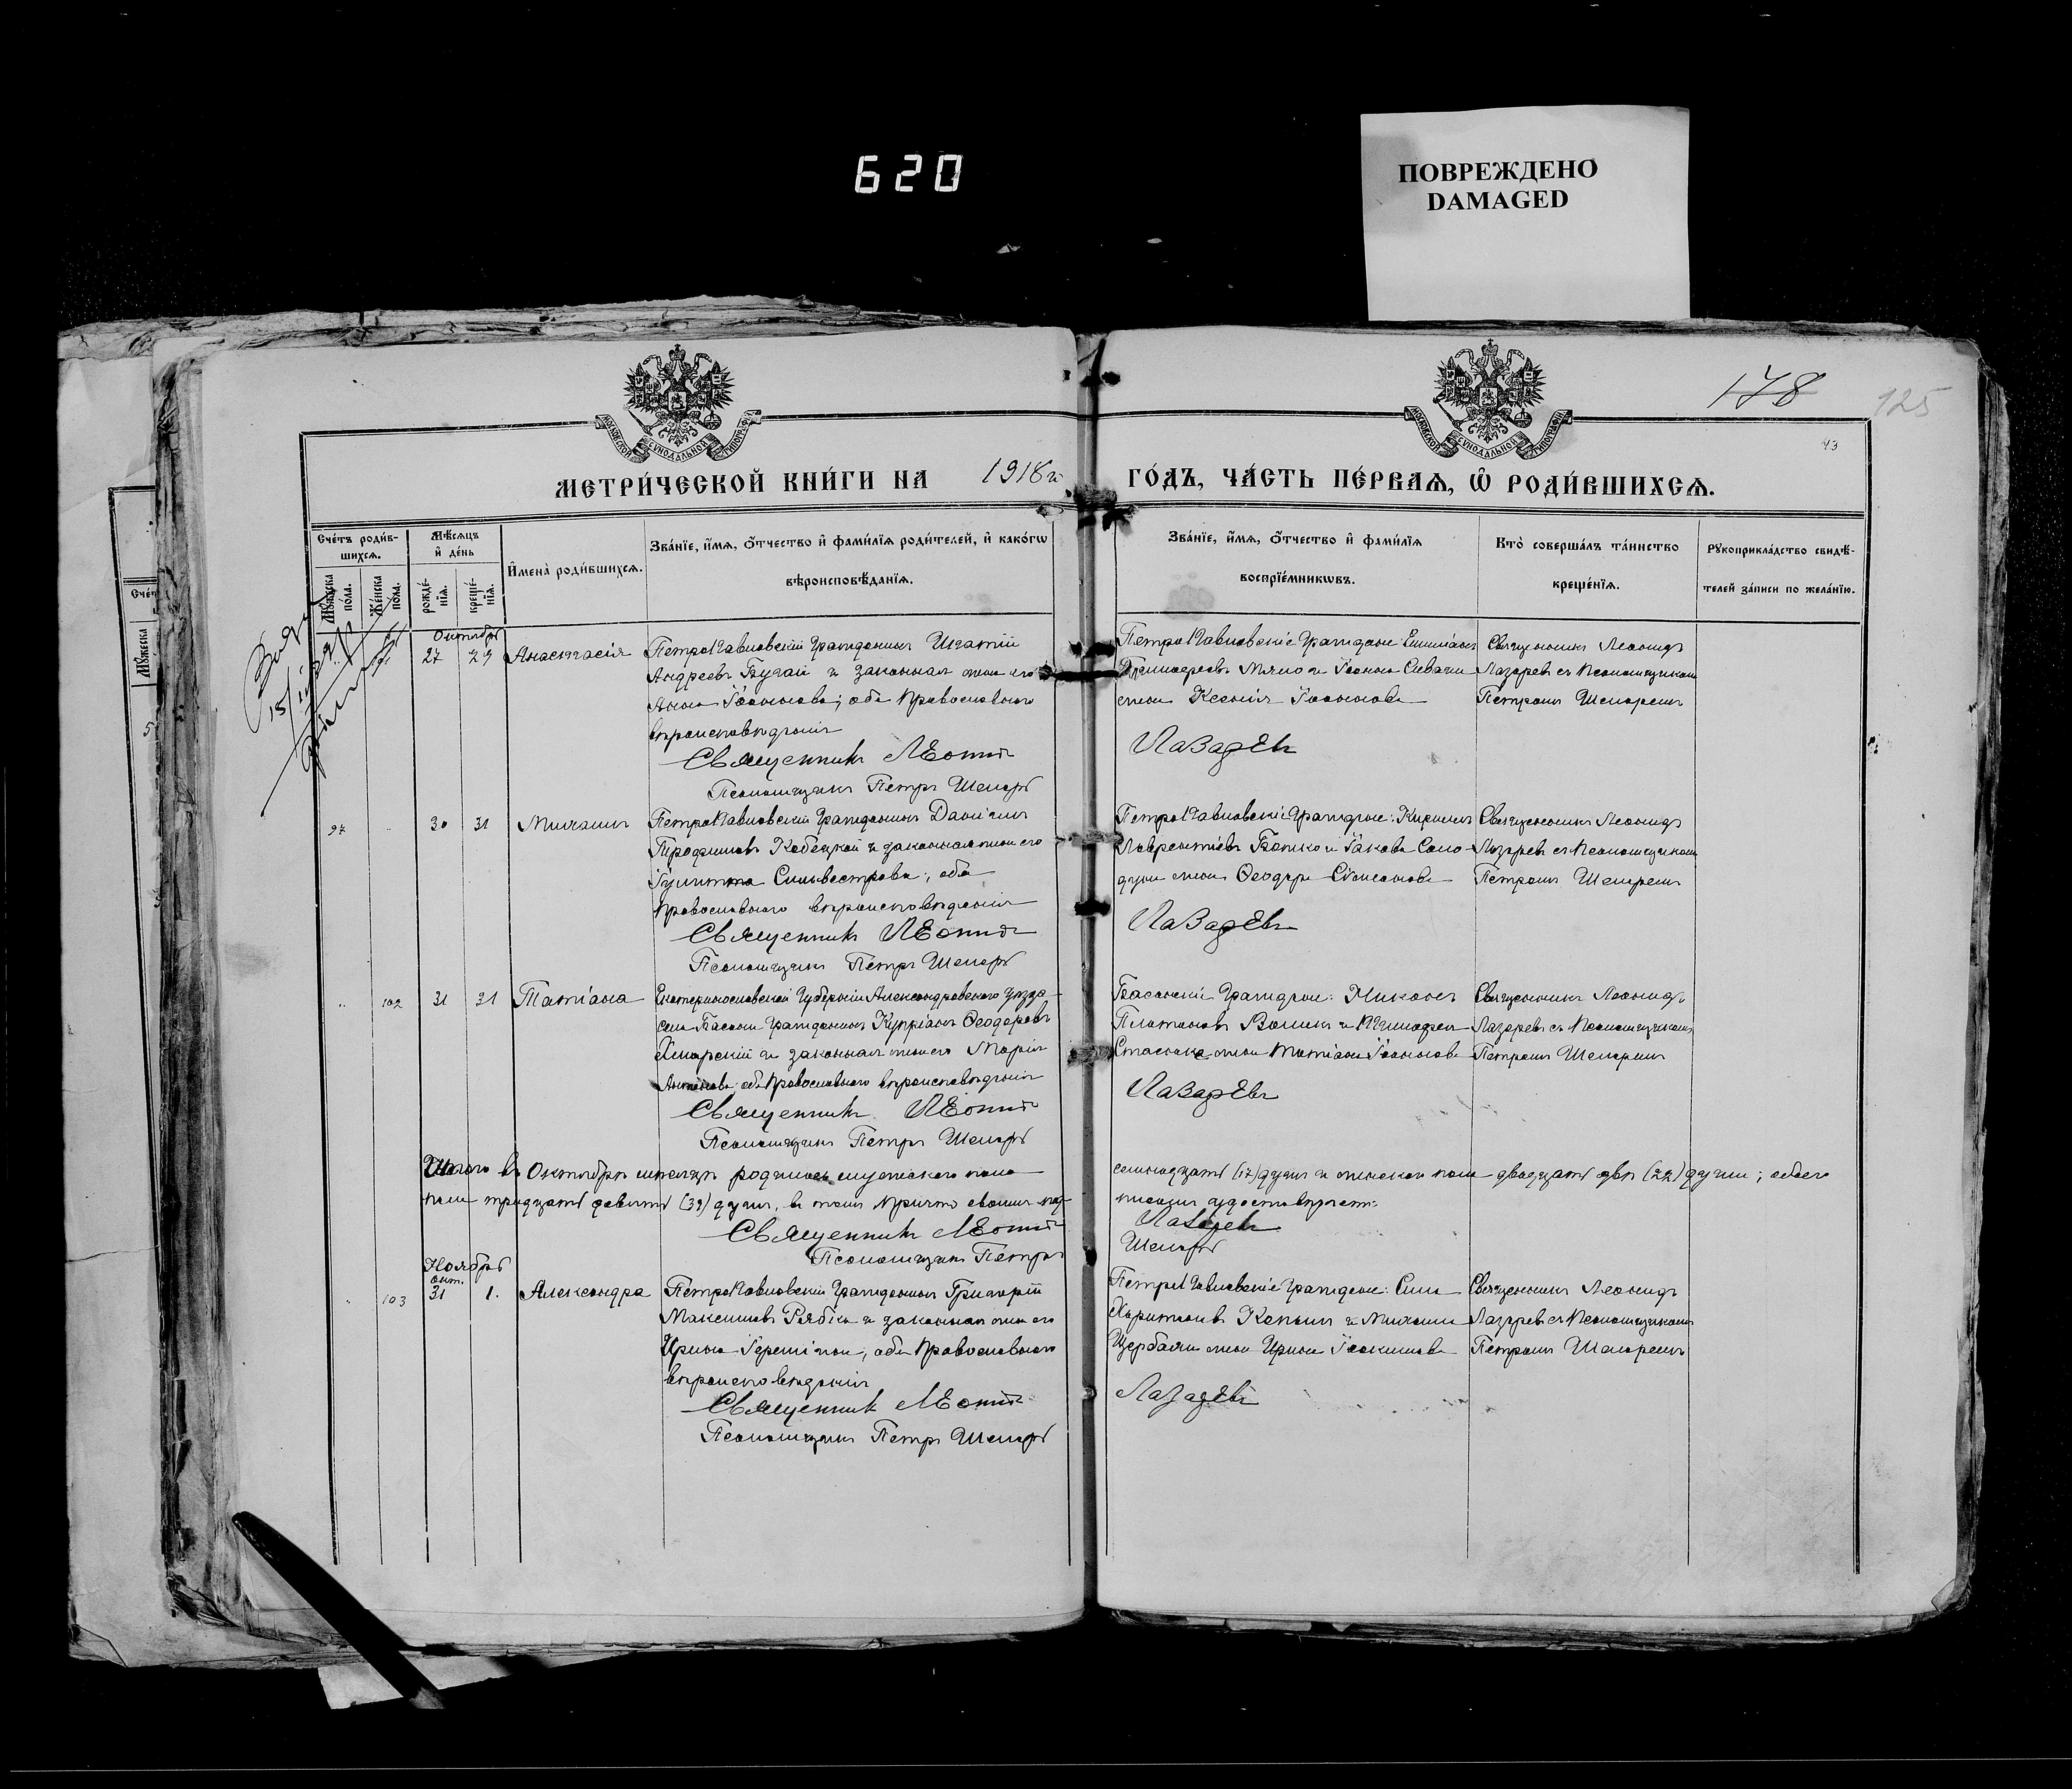 620
ПОВРЕЖДЕНО
DAMAGED
178
125
43
МЕТРИ́ЧЕСКОЙ КНИ́ГИ НА 1918 г. ГО́ДЪ, ЧА́СТЬ ПЕ́РВАѦ, Ѡ҆ РОДИ́ВШИХСѦ.
Сче́тъ роди́в-
шихсѧ.
Мꙋ́жеска по́ла.
Же́нска по́ла.
Мѣ́сѧцъ и҆ де́нь
рожде́-
нїѧ.
креще́-
нїѧ.
И҆мена̀ роди́вшихсѧ.
Зва́нїе, и҆́мѧ, ѻ҆́тчество и҆ фами́лїѧ роди́телей, и҆ како́гѡ
вѣроисповѣ́данїѧ.
Зва́нїе, и҆́мѧ, ѻ҆́тчество и҆ фами́лїѧ
воспрїе́мникѡвъ.
Кто̀ соверша́лъ та́инство
креще́нїѧ.
Рꙋкоприкла́дство свидѣ́-
телей за́писи по жела́нїю.
Октябрь
101 27 29 Анастасія
Петропавловскій Гражданинъ Игнатій
Андреевъ Бугай и законная жена его
Анна Іоаннова; оба Православнаго
вѣроисповѣданія
Священникъ Леонидъ
Псаломщикъ Петръ Шепарь
Петропавловскіе Граждане: Емиліанъ
жена Ксенія Іоаннова
Лазаревъ
Священникъ Леонидъ
Лазаревъ съ Псаломщикомъ
Петромъ Шепаремъ
97 30 31 Михаилъ
Петропавловскій Гражданинъ Даніилъ
Трофимовъ Кобецкой и законная жена его
Іулитта Сильвестрова; оба
Православнаго вѣроисповѣданія
Священникъ Леонидъ
Псаломщикъ Петръ Шепарь
Петропавловскіе Граждане: Кириллъ
Лаврентіевъ Бойко и Іакова Соло-
жена Ѳеодора
Лазаревъ
Священникъ Леонидъ
Лазаревъ съ Псаломщикомъ
Петромъ Шепаремъ
102 31 31 Татіана
Екатеринославской Губерніи Александровскаго уѣзда
села Басани Гражданинъ Купріанъ Ѳеодоровъ
Хмарскій и законная жена его Марія
оба Православнаго вѣроисповѣданія
Священникъ Леонидъ
Псаломщикъ Петръ Шепарь
Басанскіе Граждане: Никонъ
Платоновъ и Тимофея
жена Татіана Іоаннова
Лазаревъ
Священникъ Леонидъ
Лазаревъ съ Псаломщикомъ
Петромъ Шепаремъ
Итого въ Октябрѣ мѣсяцѣ родилось мужескаго пола семнадцать (17) душъ и женскаго пола двадцать двѣ (22) души; обоего
пола тридцать девять (39) душъ, въ чемъ причтъ своимъ под-
писомъ удостовѣряетъ:
Священникъ Леонидъ Лазаревъ
Псаломщикъ Петръ Шепарь
Ноябрь
окт.
103 31 1. Александра
Петропавловскій Гражданинъ Григорій
Максимовъ Рябко и законная жена его
Ирина оба Православнаго
вѣроисповѣданія
Священникъ Леонидъ
Псаломщикъ Петръ Шепарь
Петропавловскіе Граждане:
Харитоновъ и Михаила
Щербачи жена Ирина Іоакимова
Лазаревъ
Священникъ Леонидъ
Лазаревъ съ Псаломщикомъ
Петромъ Шепаремъ